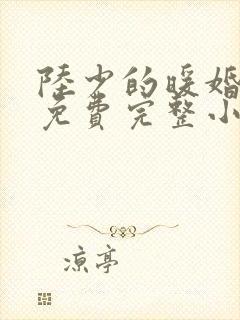 陸少的暖婚
免費完整小
凉亭